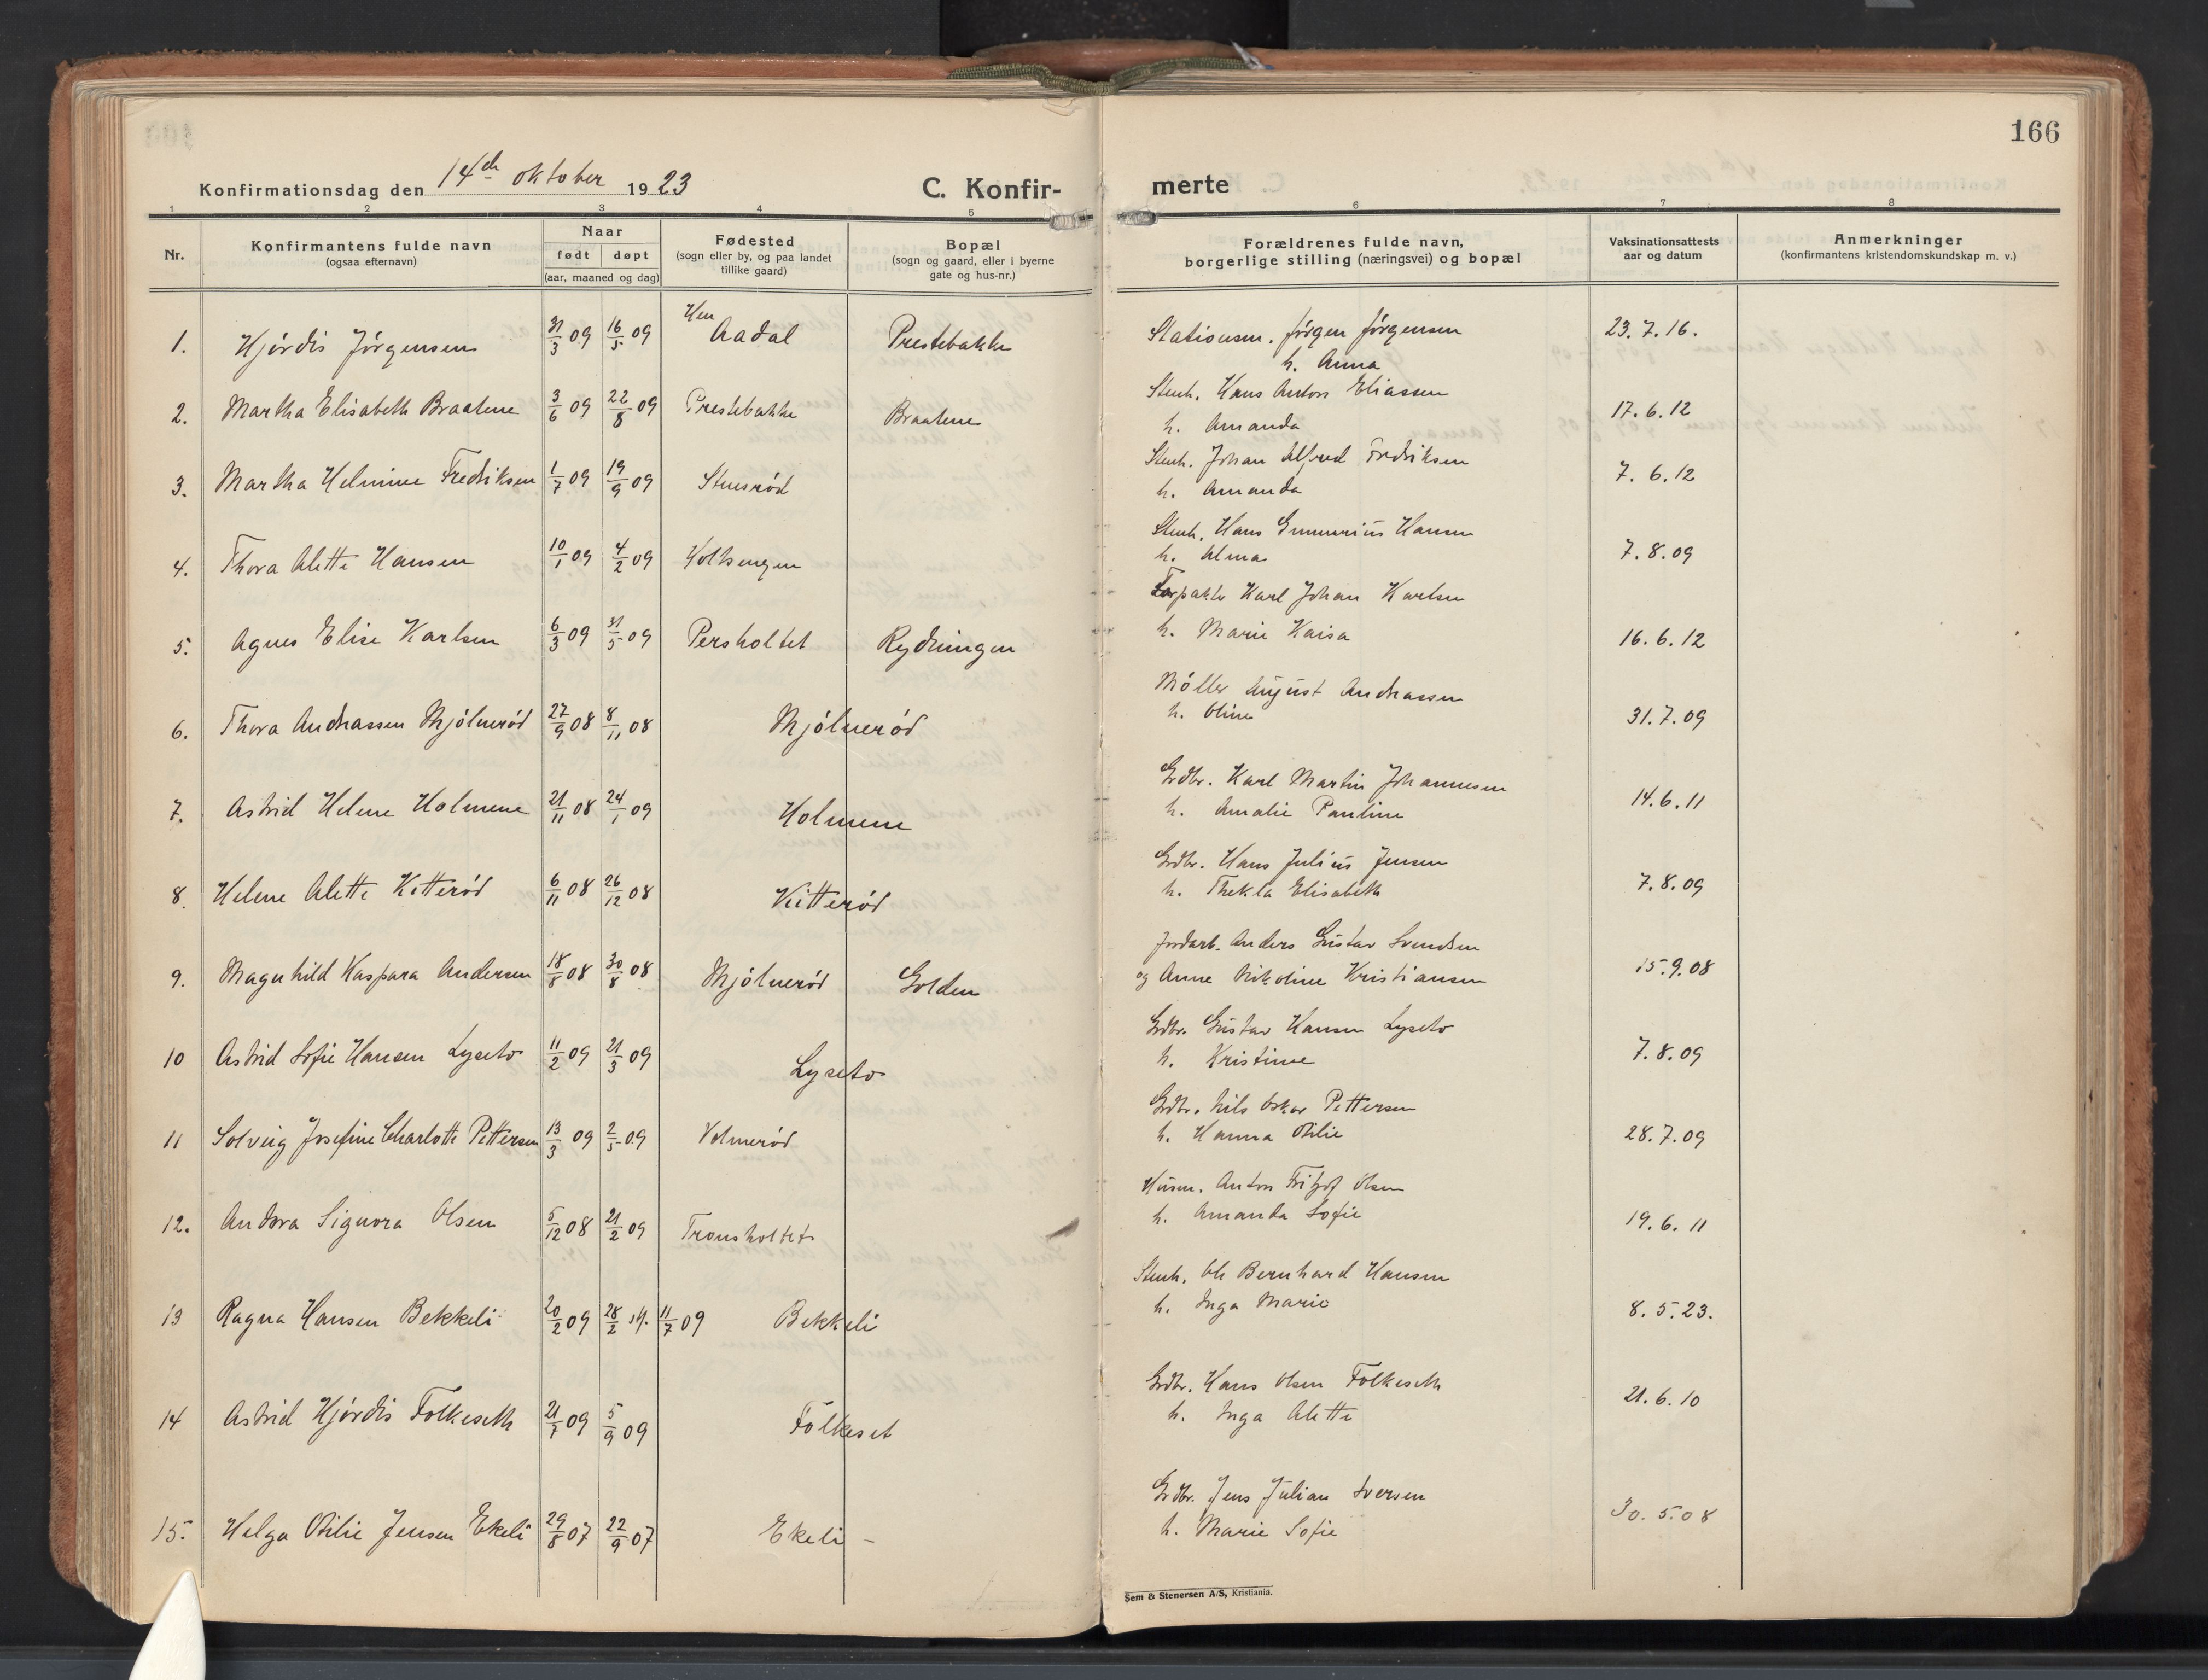 166
Konfirmationsdag den 14de oktober 1923
C. Konfir-
merte
1 2 3 4 5 6 7 8
Nr.
Konfirmantens fulde navn
(ogsaa efternavn)
Naar
født døpt
(aar, maaned og dag)
Fødested
(sogn eller by, og paa landet
tillike gaard)
Bopæl
(sogn og gaard, eller i byerne
gate og hus-nr.)
Forældrenes fulde navn,
borgerlige stilling (næringsvei) og bopæl
Vaksinationsattests
aar og datum
Anmerkninger
(konfirmantens kristendomskundskap m. v.)
1. Hjørdis Jørgensen 31/3 09 16/5 09 Hen Aadal Prestebakke Stationsm. Jørgen Jørgensen 23.7.16.
h. Anna
2. Martha Elisabeth Braatene 3/6 09 22/8 09 Prestebakke Braatene Stenh. Hans Anton Eliassen 17.6.12
h. Amanda
3. Martha Helmine Fredriksen 1/7 09 19/9 09 Stensrød Stenh. Johan Alfred Fredriksen 7.6.12
h. Amanda
4. Thora Alette Hansen 10/1 09 4/2 09 Holtsengen Stenh. Hans Gunnerius Hansen 7.8.09
h. Alma
5. Agnes Elise Karlsen 6/3 09 31/5 09 Persholtet Rydningen Forpakter Karl Johan Karlsen 16.6.12
h. Marie Kaisa
6. Thora Andreassen Mjølnerød 27/9 08 8/11 08 Mjølnerød Møller August Andreassen 31.7.09
h. Oline
7. Astrid Helene Holmene 21/11 08 24/1 09 Holmene Grdbr. Karl Martin Johannesen 14.6.11
h. Amalie Pauline
8. Helene Alette Kitterød 6/11 08 26/12 08 Kitterød Grdbr. Hans Julius Jensen 7.8.09
h. Thekla Elisabeth
9. Magnhild Kaspara Andersen 18/8 08 30/8 08 Mjølnerød Golden Jordarb. Anders Gustav Svendsen 15.9.08
og Anne Nikoline Kristiansen
10 Astrid Sofie Hansen Lyseto 11/2 09 21/3 09 Lyseto Grdbr. Gustav Hansen Lyseto 7.8.09
h. Kristine
11 Solveig Josefine Charlotte Pettersen 13/3 09 2/5 09 Holmerød Grdbr. Nils Oskar Pettersen 28.7.09
h. Hanna Otilie
12. Andora Signora Olsen 5/12 08 21/2 09 Tronsholtet Husm. Anton Fritjof Olsen 19.6.11
h. Amanda Sofie
13 Ragna Hansen Bekkeli 20/2 09 28/2 st. 11/7 09 Bekkeli Stenh. Ole Bernhard Hansen 8.5.23.
h. Inga Marie
14 Astrid Hjørdis Folkeseth 21/7 09 5/9 09 Folkeset Grdbr. Hans Olsen Folkeseth 21.6.10
h. Inga Alette
15. Helga Otilie Jensen Ekeli 29/8 07 22/9 07 Ekeli - Grdbr. Jens Julian Iversen 30.5.08
h. Marie Sofie
Sem & Stenersen A/S, Kristiania.